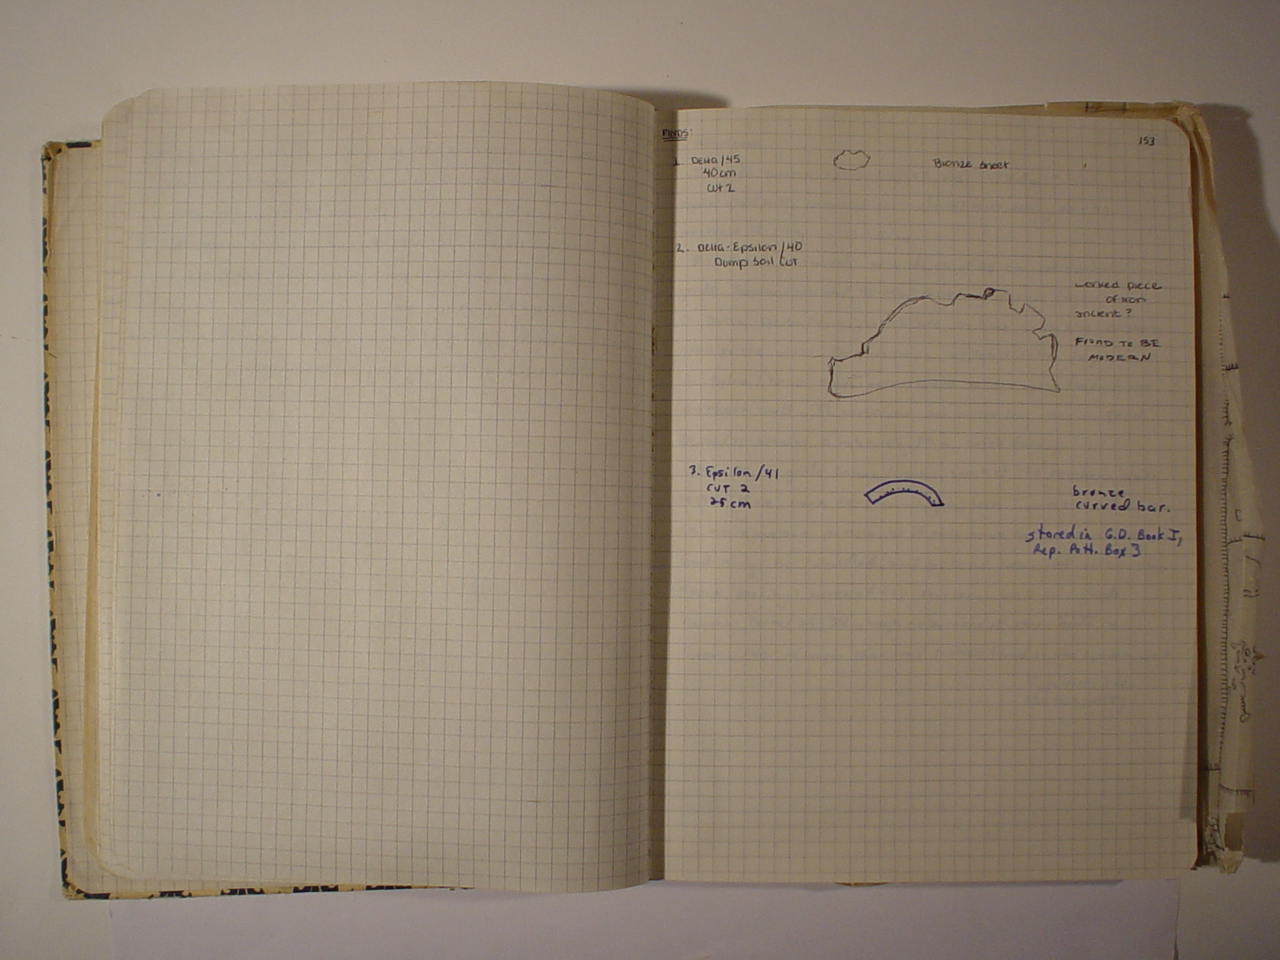 FINDS:
153
1. Delta/45
40cm
cut 2
Bronze sheet
2. Delta-Epsilon/40
Dump Soil Cut
worked piece
of iron
ancient?
FOUND TO BE
MODERN
3. Epsilon/41
cut 2
25 cm
bronze
curved bar.
stored in G.D. Book I,
Rep. Pott. Box 3